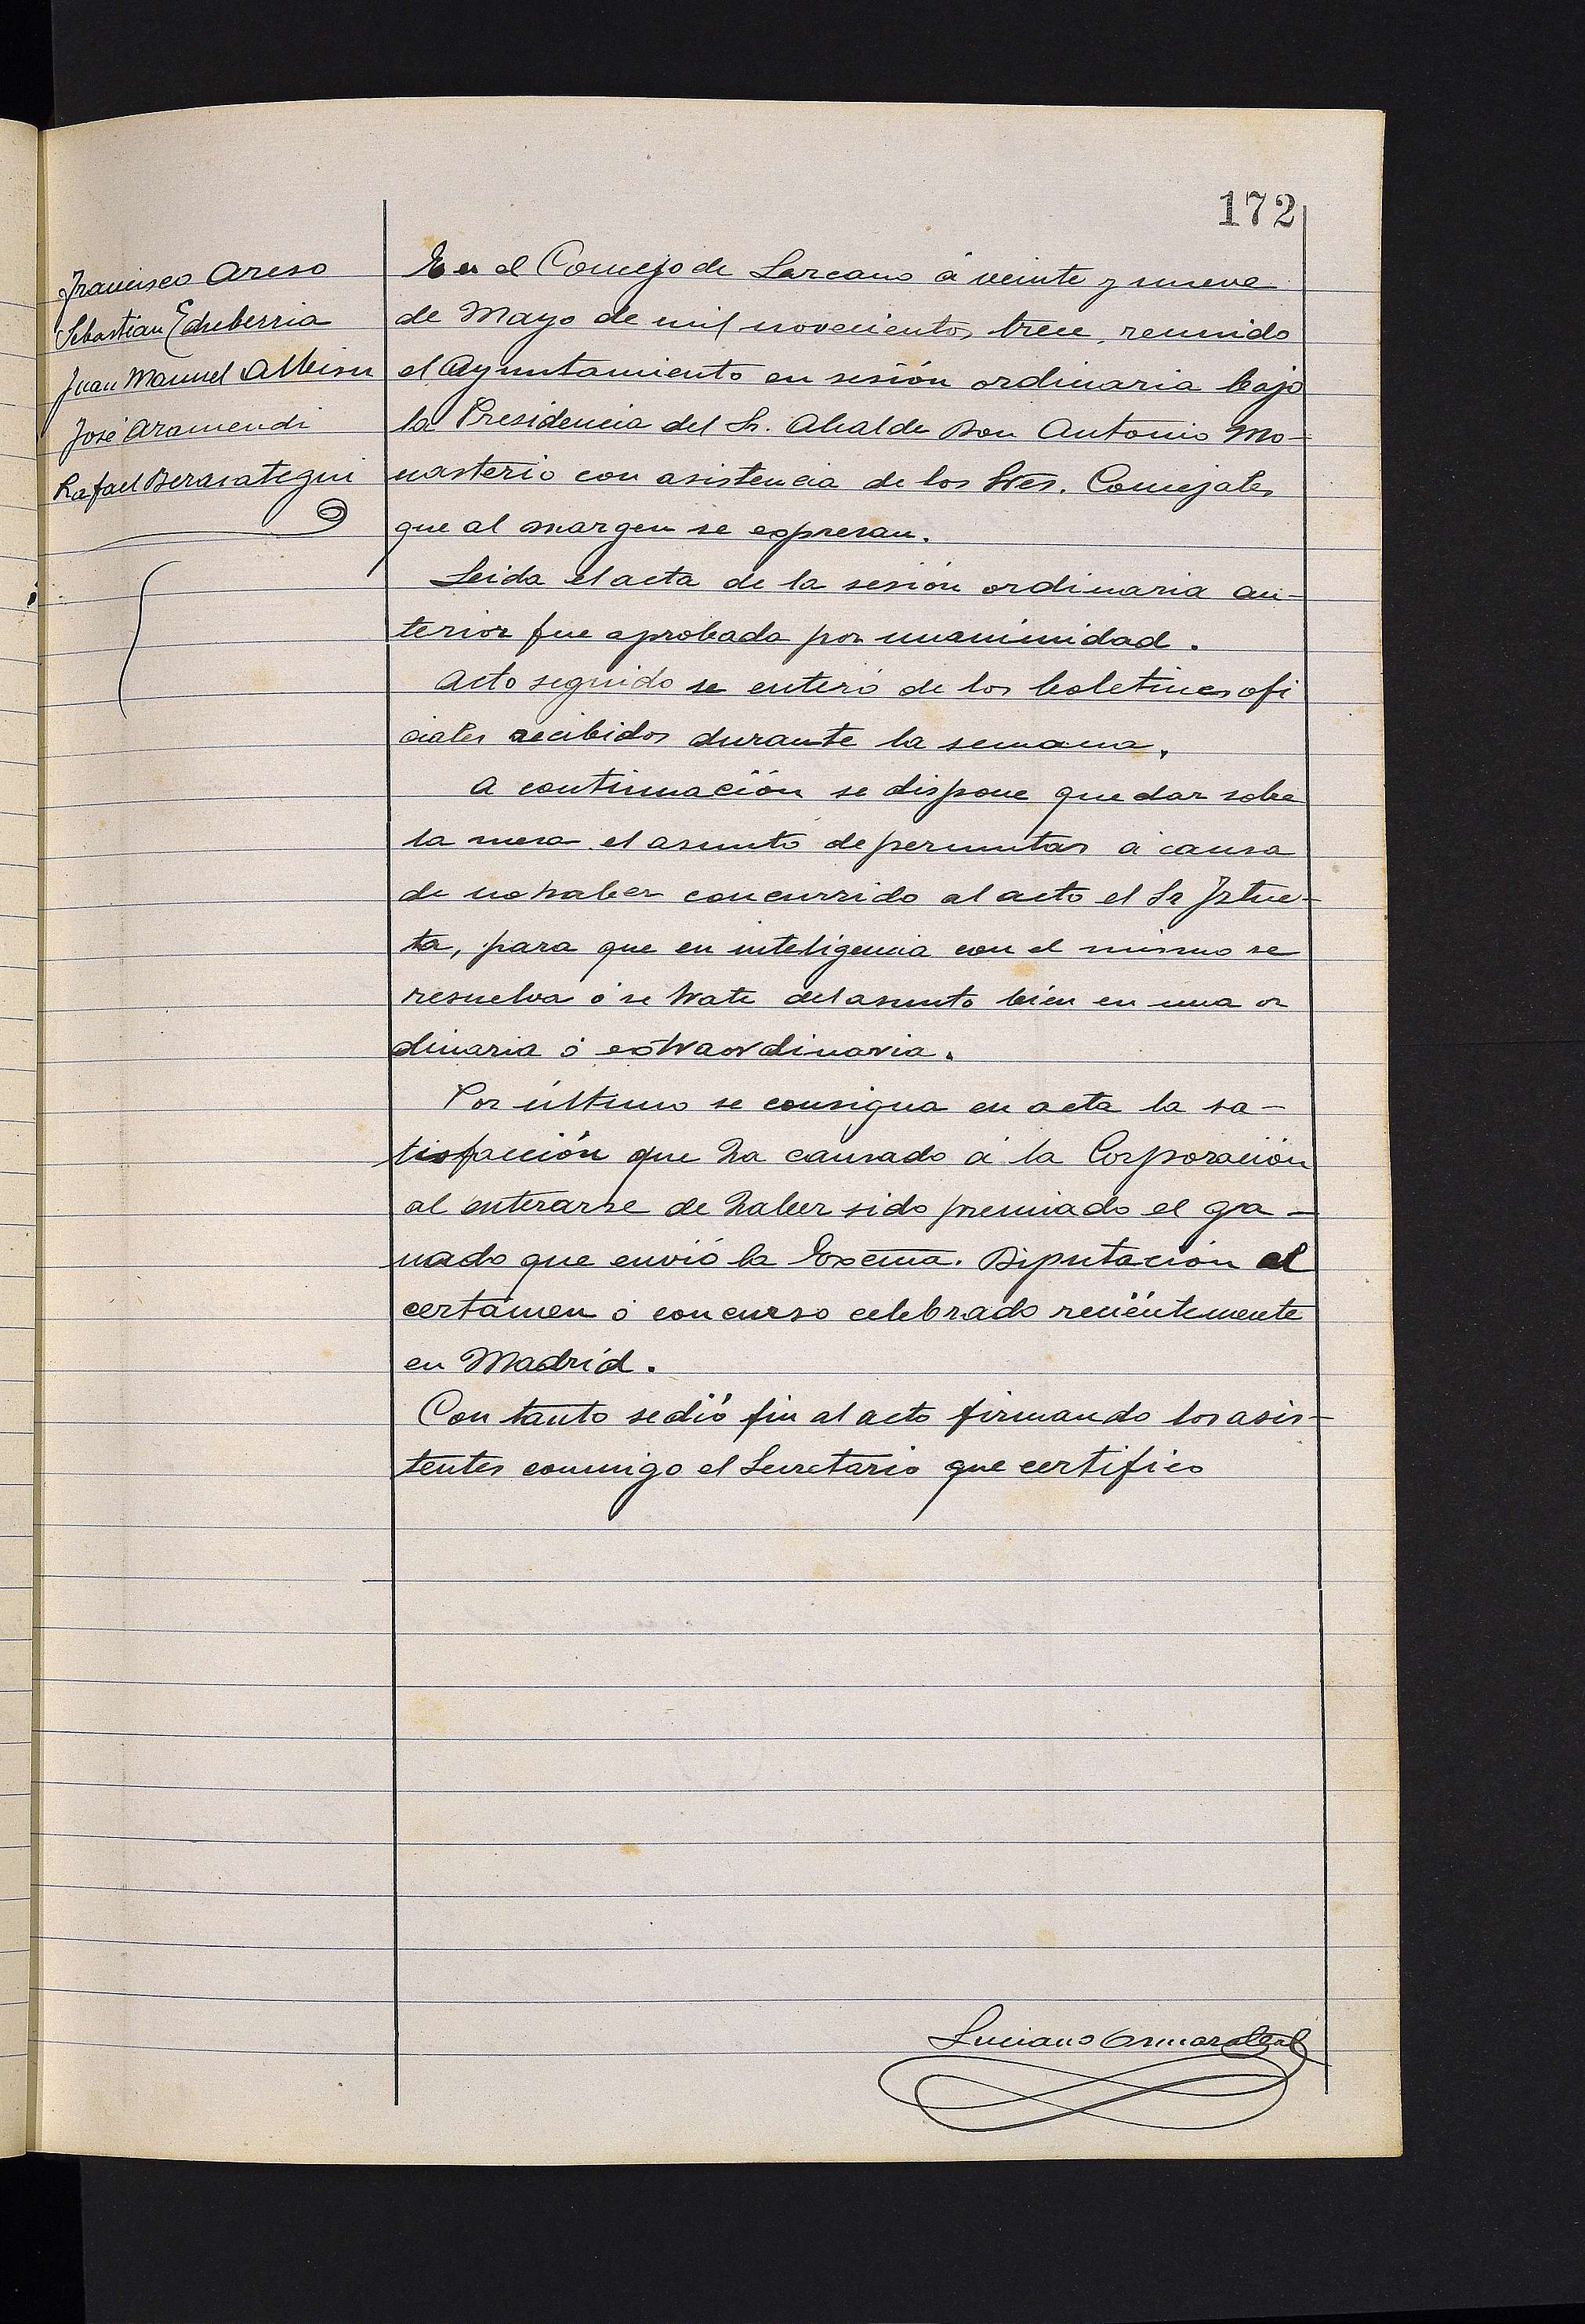 172
Francisco Areso
Sebastian Echeberria
Juan Manuel Albisu
José Aramendi
Rafael Berasategui
En el Concejo de Lazcano á veinte y nueve
de Mayo de mil novecientos trece, reunido
el Ayuntamiento en sesión ordinaria bajo
la Presidencia del Sr. Alcalde Don Antonio Mo-
nasterio con asistencia de los Sres. Concejales
que al margen se expresan.
Leida el acta de la sesión ordinaria an-
terior fue aprobada por unanimidad.
Acto seguido se enteró de los boletines ofi
ciales recibidos durante la semana.
A continuación se dispone quedar sobre
la mesa el asunto de permutas á causa
de no haber concurrido al acto el Sr Iztue-
ta, para que en inteligencia con el mismo se
resuelva ó se trate del asunto bien en una or
dinaria ó extraordinaria.
Por último se consigna en acta la sa-
tisfacción que ha causado á la Corporación
al enterarse de haber sido premiado el ga-
nado que envió la Excma. Diputación al
certámen ó concurso celebrado recientemente
en Madrid.
Con tanto se dió fin al acto firmando los asis-
tentes conmigo el Secretario que certifico
Luciano